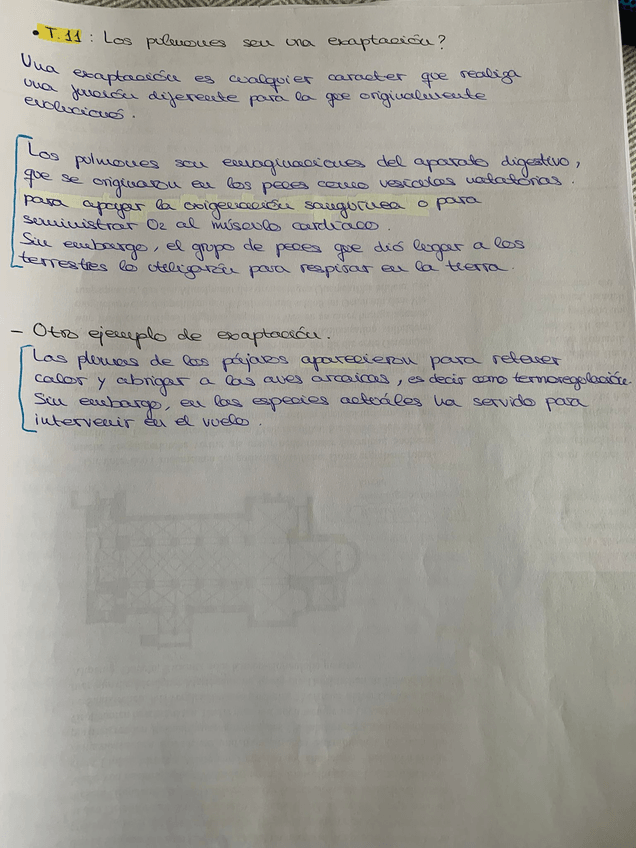 • T.11: Los pulmones son una exaptación?
Una exaptación es cualquier caracter que realiza
una función diferente para la que originalmente
evolucionó.
Los pulmones son envaginaciones del aparato digestivo,
que se originaron en los peces como vesículas natatorias.
para apoyar la oxigenación sanguínea o para
suministrar O2 al músculo cardiaco.
Sin embargo, el grupo de peces que dió lugar a los
terrestres lo utilizarón para respirar en la tierra.
- Otro ejemplo de exaptación.
Las plumas de los pájaros aparecieron para retener
calor y abrigar a las aves arcaicas, es decir como termoregulación.
Sin embargo, en las especies actuáles ha servido para
intervenir en el vuelo.